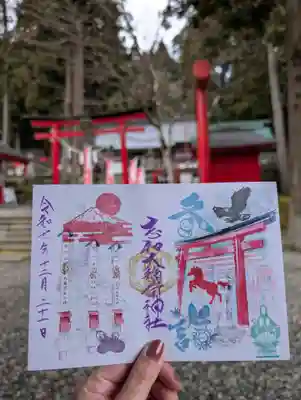 参詣
志和稲荷神社
令和七年十二月二十一日